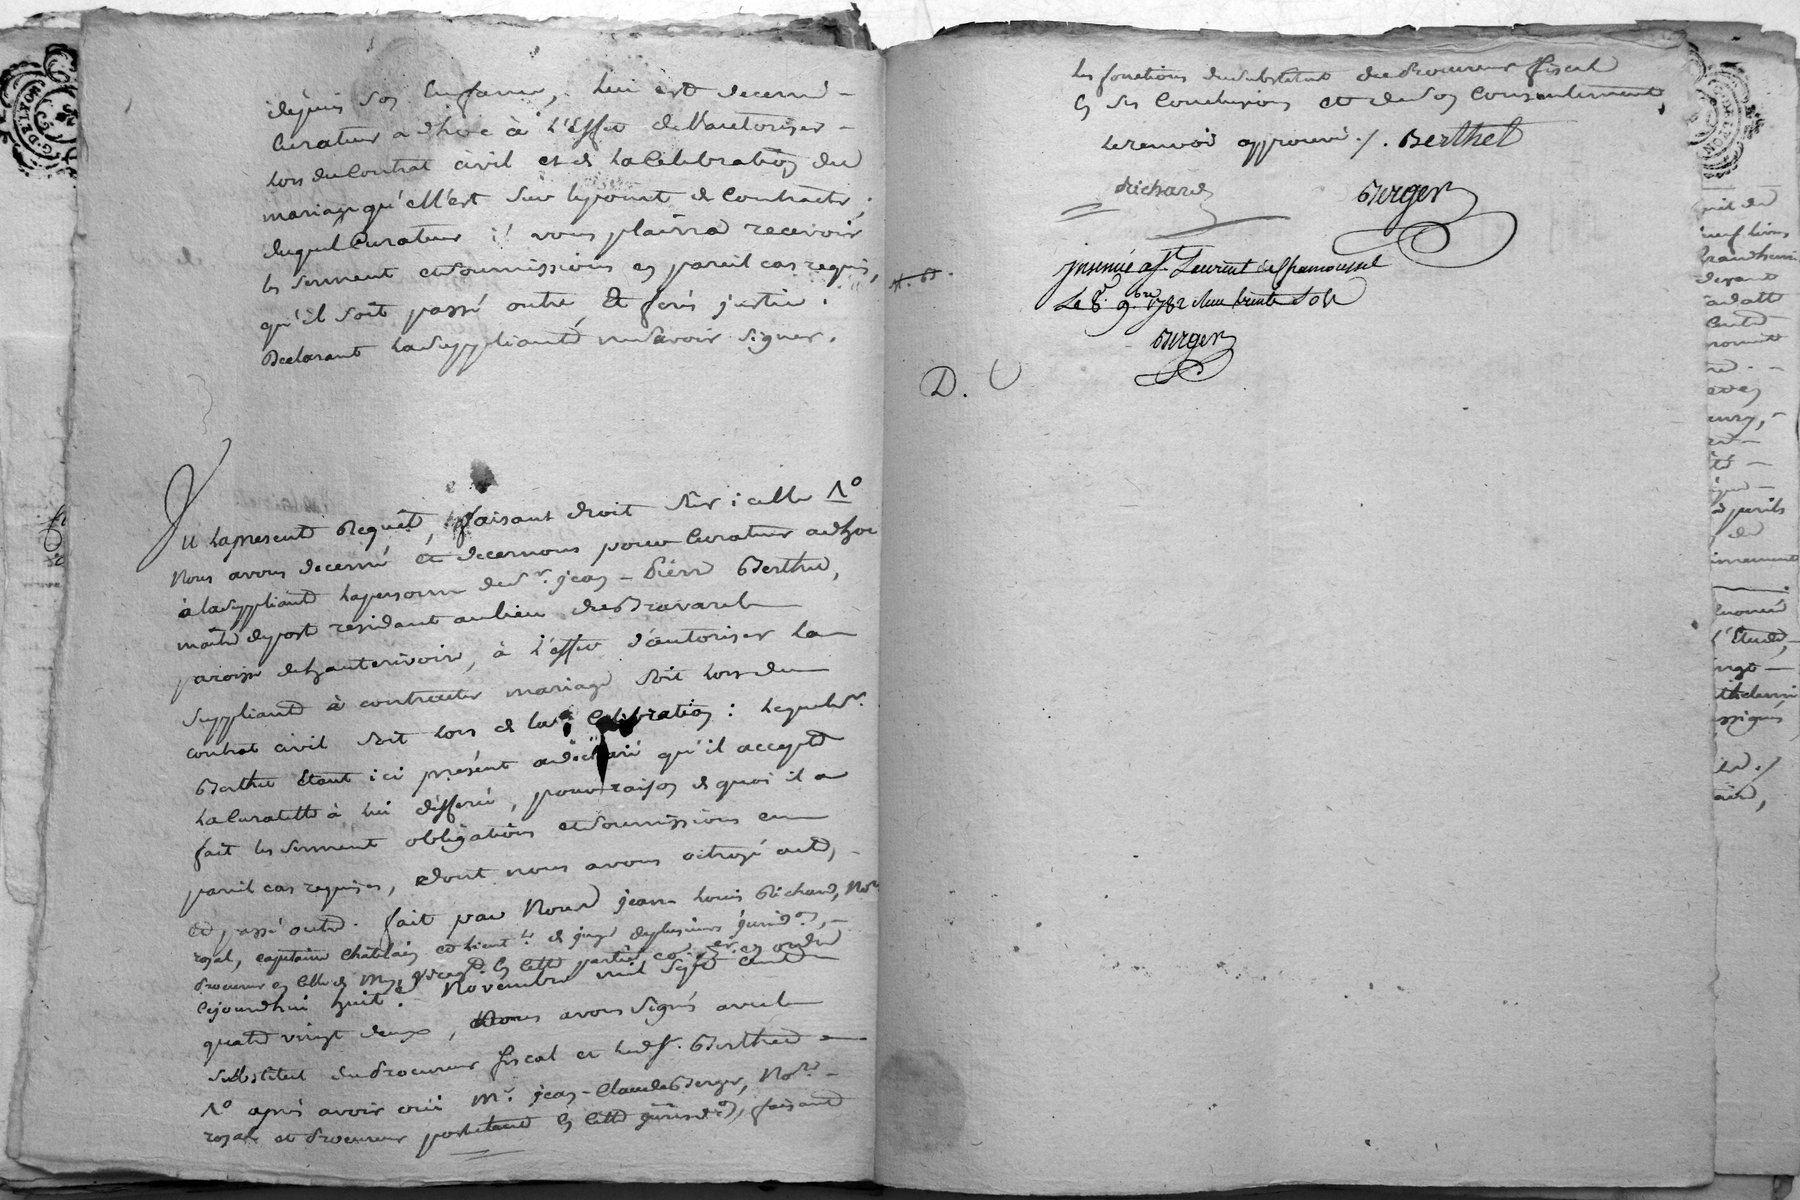 depuis son Enfance, lui est decerné
Curateur adhoc à l'Effet de l'autoriser
lors du Contrat civil et de la Célébration du
mariage qu'ell'est sur le point de Contracter,
duquel Curateur il vous plaira recevoir
les serment et soumissions en pareil cas requis,
qu'il soit passé outre, et ferés justice.
Declarant la suppliante ne savoir signer.
Vu la presente Requete, faisant droit sur icelle 1°
Nous avons decerné et decernons pour Curateur adhoc
à la suppliante la personne de Sr. jean-Pierre Berthet,
maitre de post residant au lieu de Bravarel
paroisse de hauterivoire, à l'effet d'autoriser la
suppliante à contracter mariage soit lors du
contrat civil soit lors de la Celebration : lequel Sr.
Berthet Etant ici présent a déclaré qu'il accepte
la Curatelle à lui défférée, pour raison de quoi il a
fait les serment obligations et soumissions en
pareil cas requises, dont nous avons octroyé acte,
et passé outre. fait par Nous jean Louis Richard, Nore.
royal, capitaine Chatelain et lieut. de juge de plusieurs juridons,
Procureur en celle de en cette partie en ordre
Cejourdhui huit Novembre mil sept cent
quatre vingt deux, Nous avons signés avec le
substitut du Procureur fiscal et led. Sr. Berthet
1° après avoir oui Me. jean-Claude Berger, Nore.
royal et Procureur postulant en cette jurisdon, faisant
les fonctions du substitut du Procureur fiscal
en ses Conclusions et de son Consentement,
le renvoi approuvé ./. Berthet
Richard Berger
jnsinué à St. Laurent de Chamousset
Le 8e. 9bre 1782 Reçu trente sols
Berger
D.